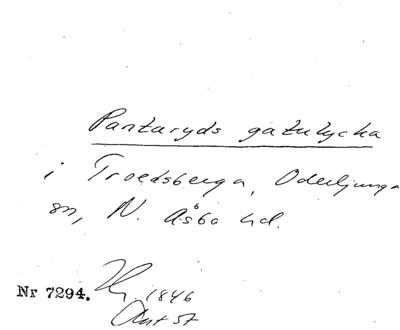 Pantaryds gatulycka
i Troedsberga, Oderljunga
sn, N. Åsbo hd.
Nr 7294.
1846